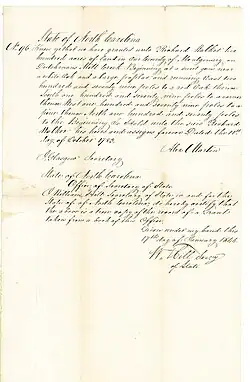 State of North Carolina
No 96 Know ye that we have granted unto Richard Walker two
hundred acres of land in our County of Montgomery on
Dutchmans Mill Creek Beginning at a dead pine near
a white oak and a large poplar and running West two
hundred and seventy nine poles to a red oak thence
South one hundred and seventy nine poles to a corner
thence East one hundred and seventy nine poles to a
pine thence North one hundred and seventy poles
to the Beginning To Hold unto the said Richard
his heirs and assigns forever Dated the
day of October 1783.
Alex Martin
J. Glasgow Secretary
State of North Carolina
Office of Secretary of State
I William Hill Secretary of State in and for the
State of North Carolina do hereby certify that
the above is a true copy of the record of a Grant
taken from a book of this Office.
Given under my hand this
17th day of January 1844
W. Hill Secy
of State